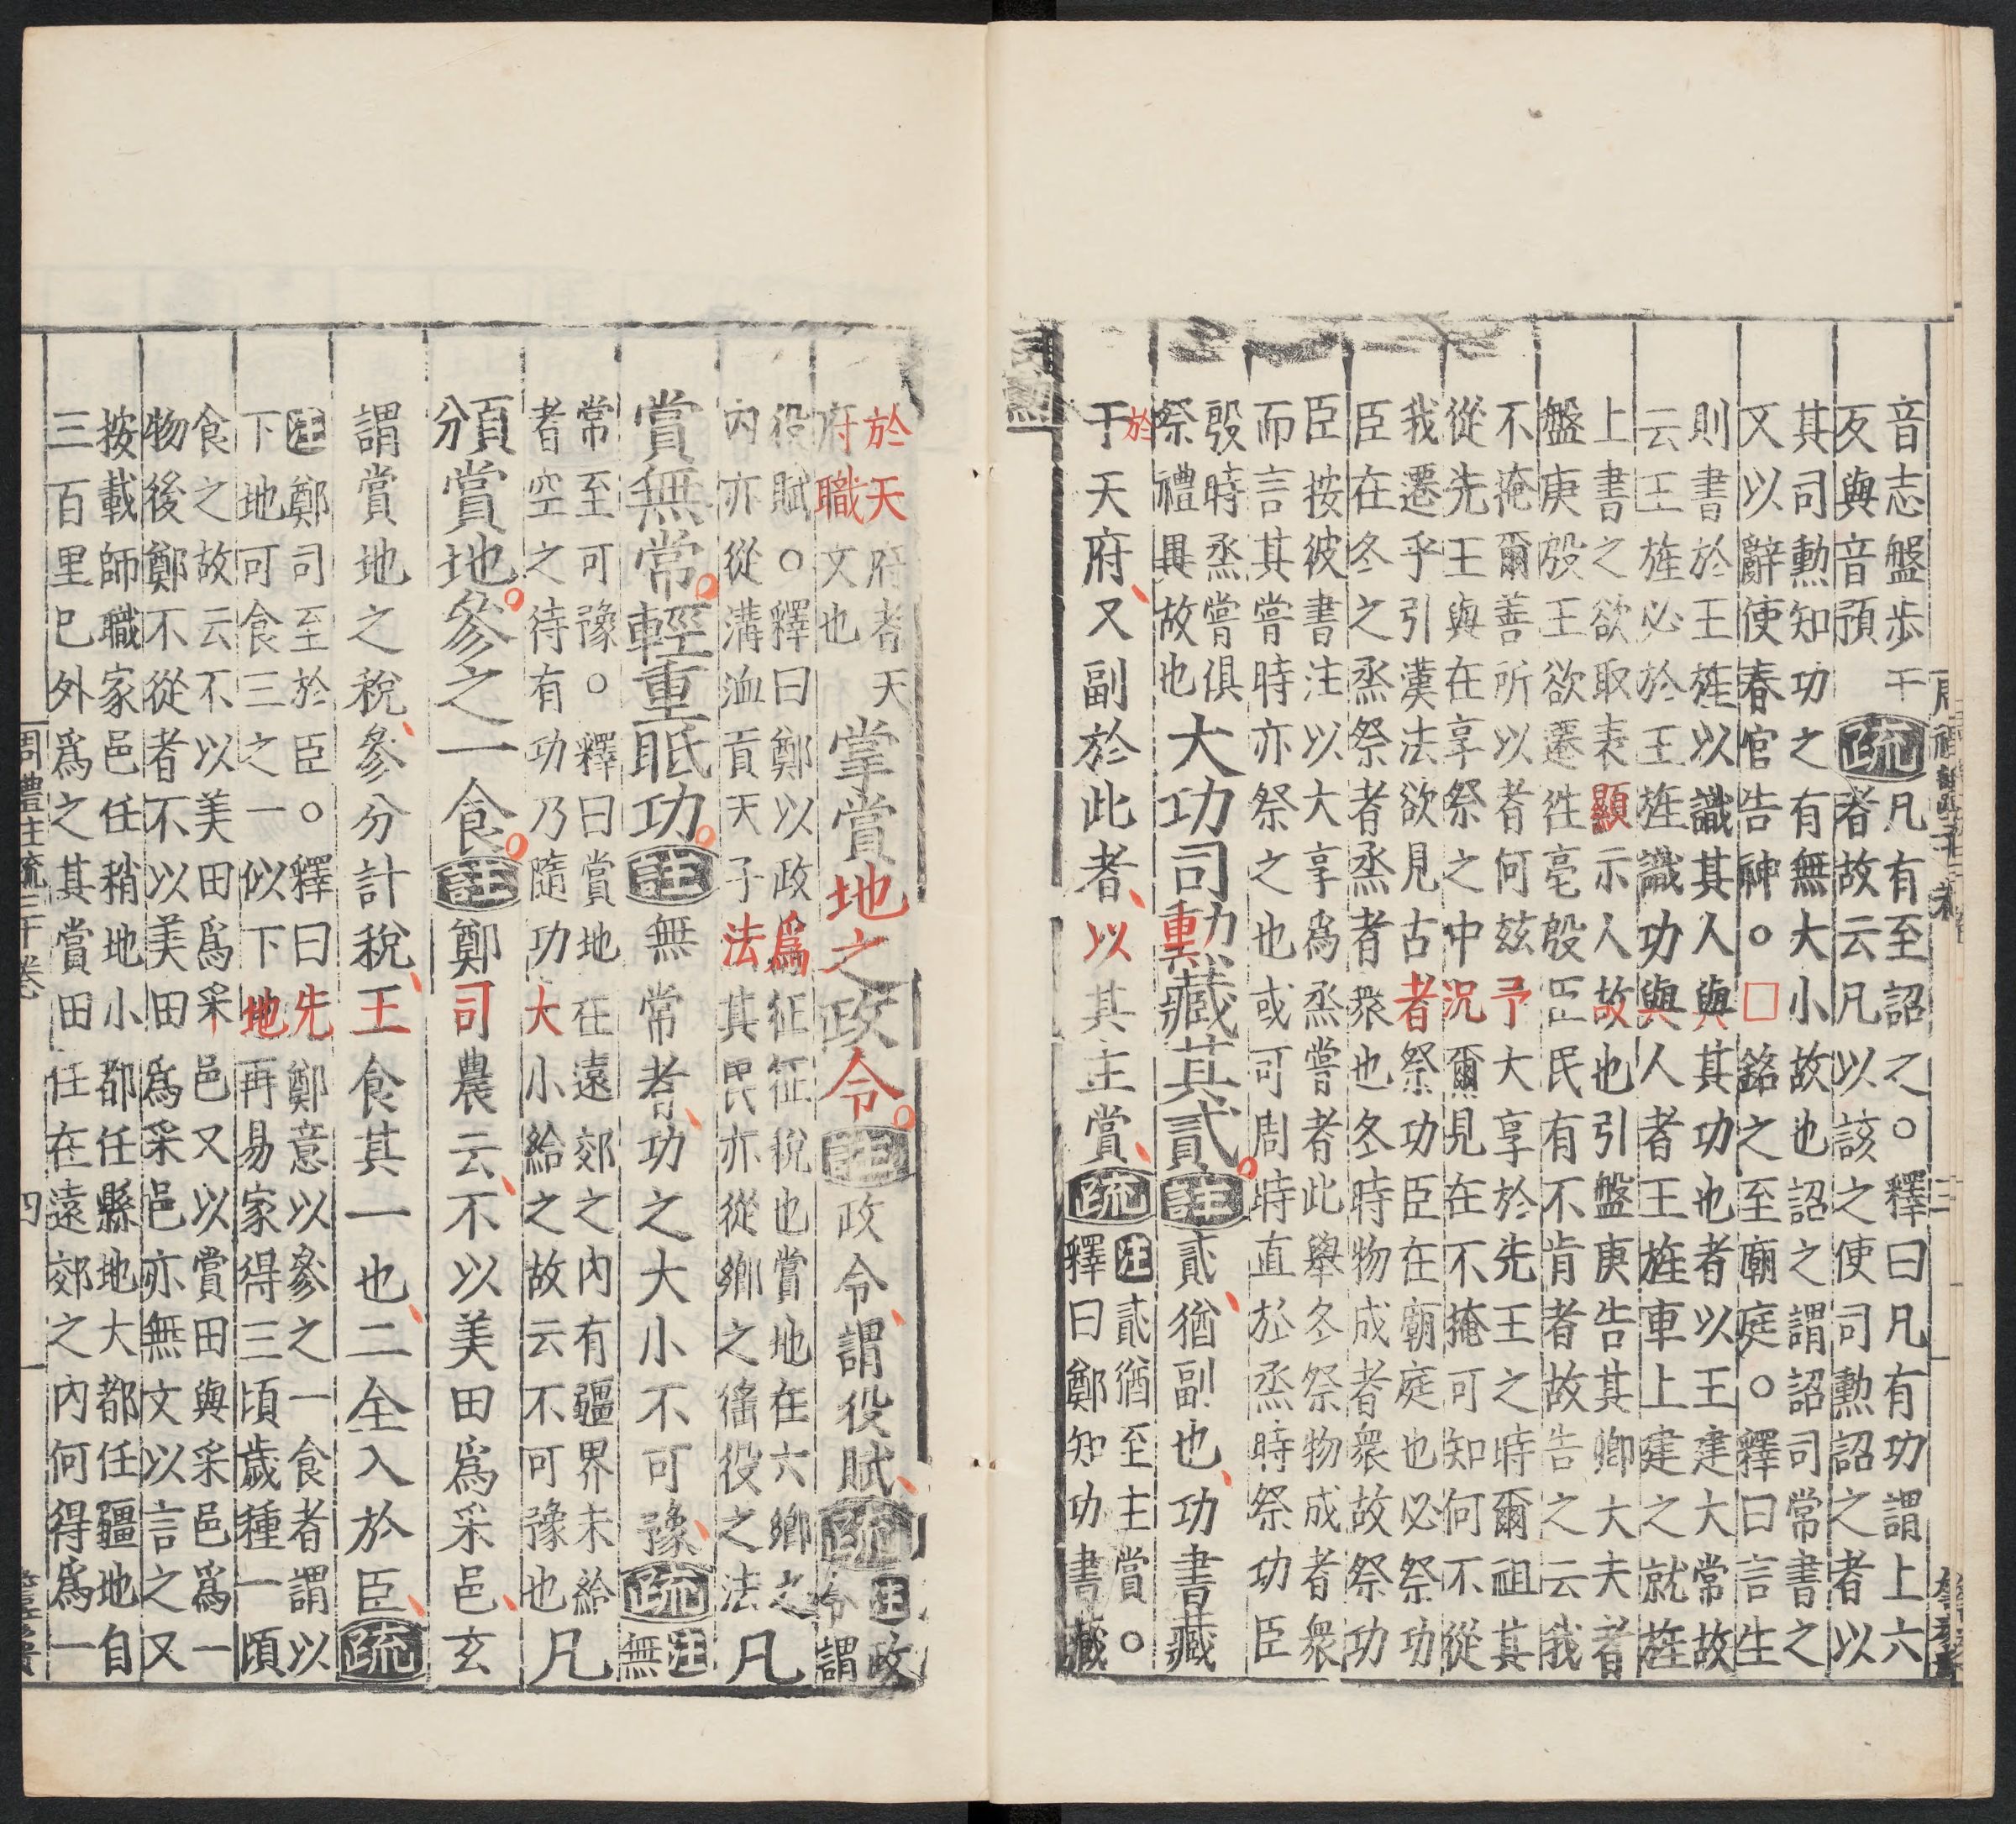 音志盤步干
反與音預
疏
凡有至詔之○釋曰凡有功謂上六
者故云凡以該之使司勲詔之者以
其司勲知功之有無大小故也詔之謂詔司常書之
又以辭使春官告神○□銘之至廟庭○釋曰言生
則書於王旌以識其人與其功也者以王建大常故
云王旌必於王旌識功與人者王旌車上建之就旌
上書之欲取表顯示人故也引盤庚告其卿大夫者
盤庚殷王欲遷徃亳殷臣民有不肯者故告之云我
不掩爾善所以者何兹予大享於先王之時爾祖其
從先王與在享祭之中況爾見在不掩可知何不從
我遷乎引漢法欲見古者祭功臣在廟庭也必祭功
臣在冬之烝祭者烝者衆也冬時物成者衆故祭功
臣按彼書注以大享爲烝嘗者此舉冬祭物成者衆
而言其嘗時亦祭之也或可周時直於烝時祭功臣
殷時烝嘗俱
祭禮異故也
大功司勲藏其貳
註
貳猶副也功書藏
于
於
天府又副於此者以其主賞
疏
注貳猶至主賞○
釋曰鄭知功書藏
於天府者天
府職文也
掌賞地之政令
註
政令謂役賦
疏
注政
令謂
役賦○釋曰鄭以政爲征征稅也賞地在六鄉之
內亦從溝洫貢天子法其民亦從鄉之徭役之法
凡
賞無常輕重眡功
註
無常者功之大小不可豫
疏
注無
常至可豫○釋曰賞地在遠郊之內有疆界未給
者空之待有功乃隨功大小給之故云不可豫也
凡
頒賞地參之一食
註
鄭司農云不以美田爲采邑玄
謂賞地之稅參分計稅王食其一也二全入於臣
疏
注鄭司至於臣○釋曰先鄭意以參之一食者謂以
下地可食三之一似下地再易家得三頃歲種一頃
食之故云不以美田爲采邑又以賞田與采邑爲一
物後鄭不從者不以美田爲采邑亦無文以言之又
按載師職家邑任稍地小都任縣地大都任疆地自
三百里已外爲之其賞田任在遠郊之內何得爲一
周禮註疏三十卷
四